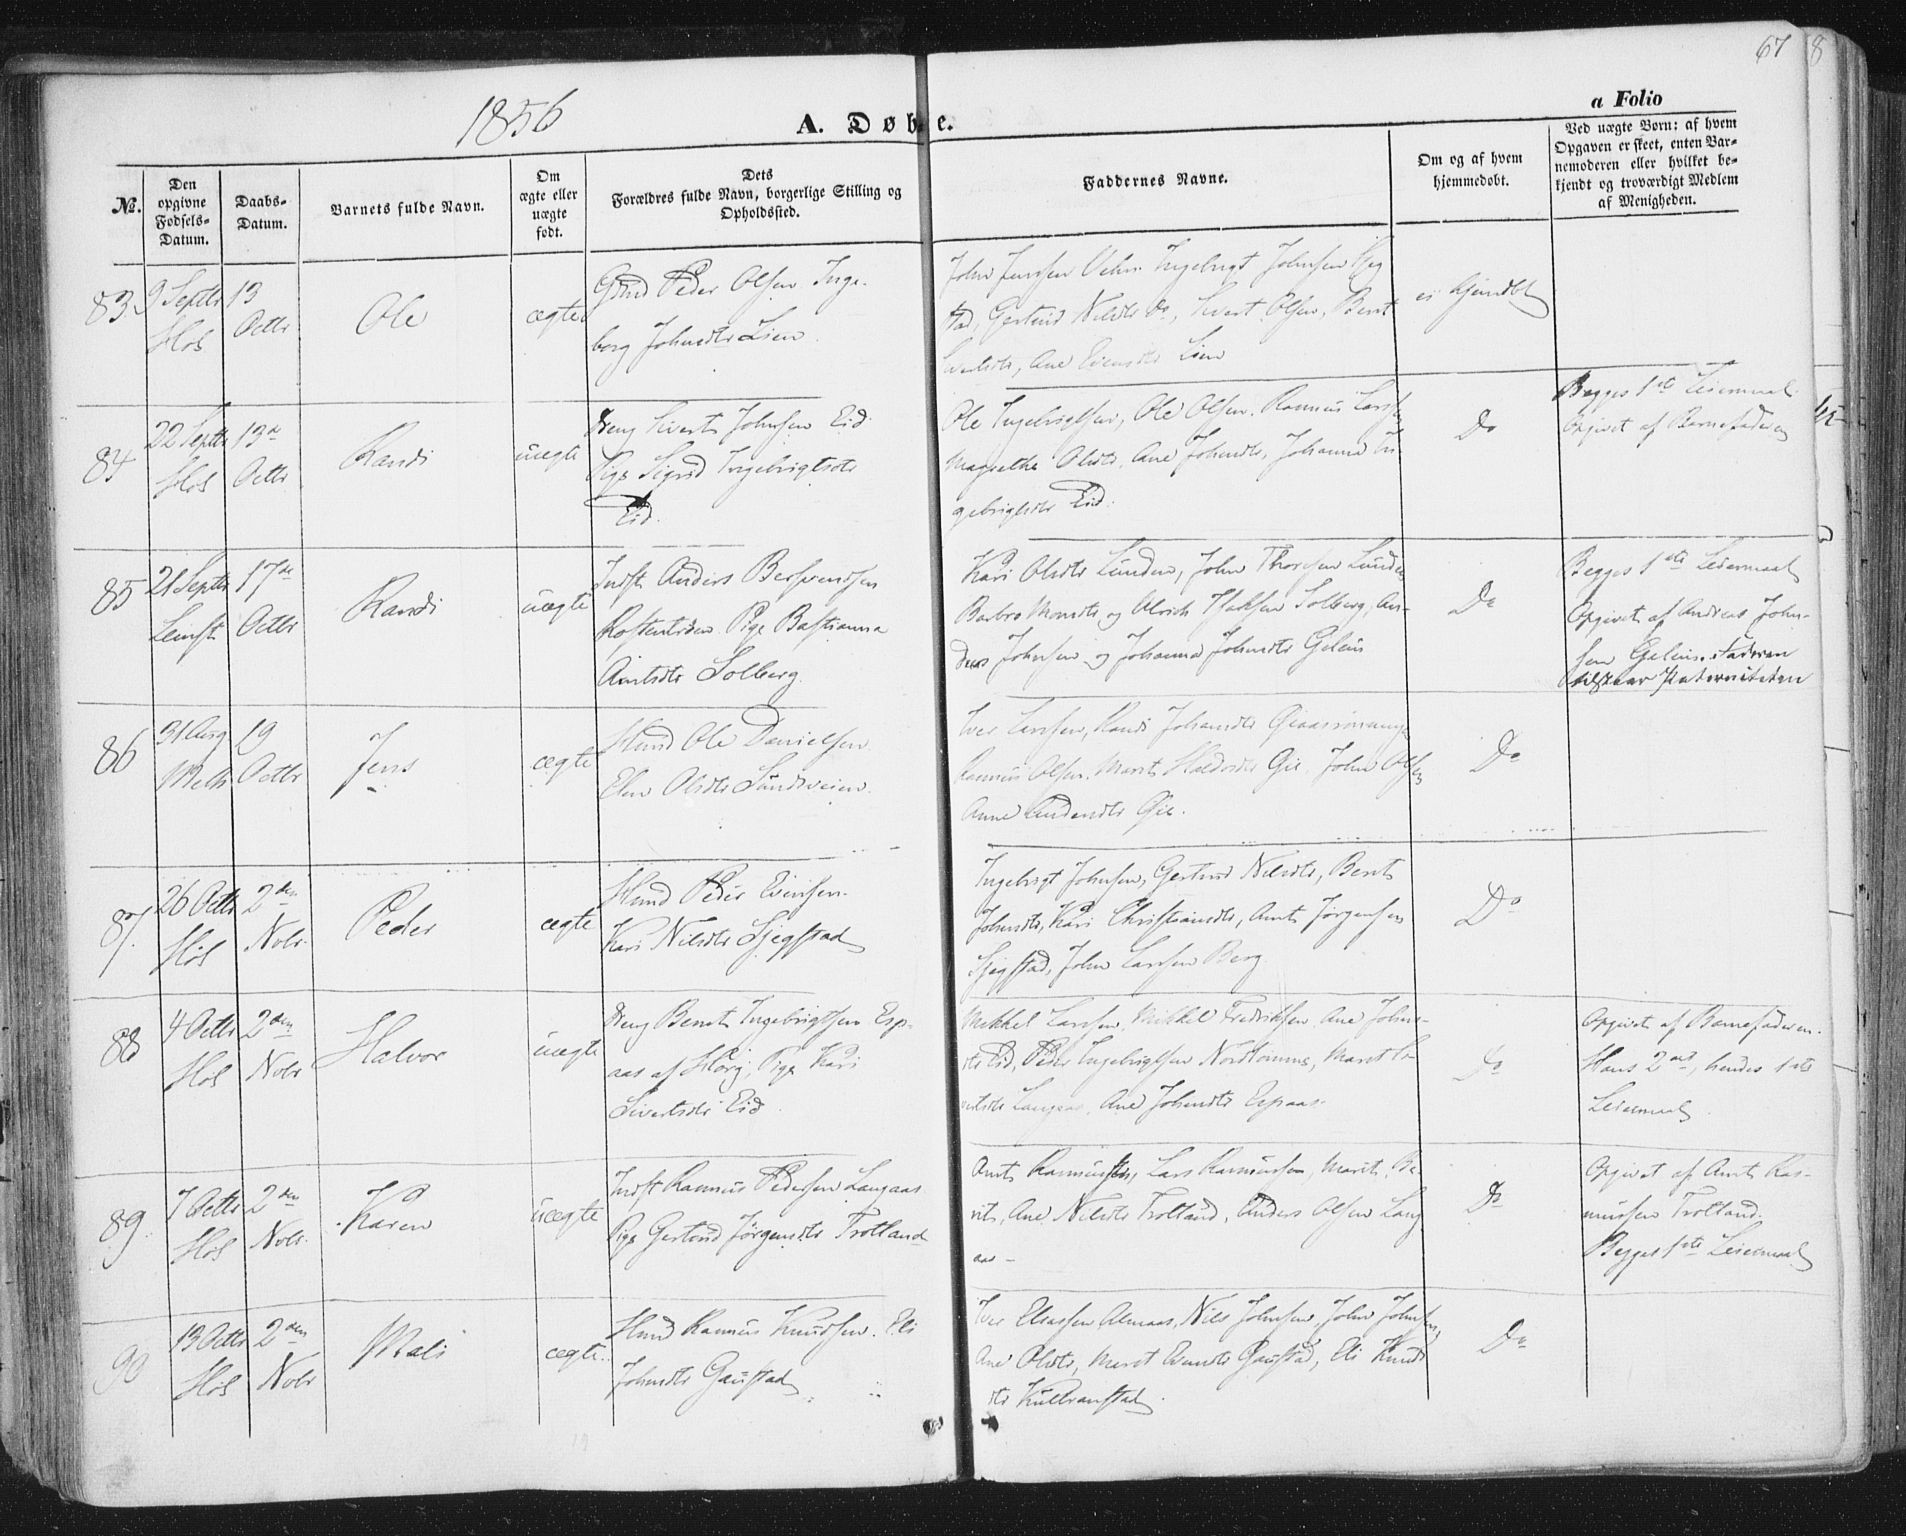 67
8
1856
A. Døbte.
a Folio
No.
Den opgivne Fødsels-Datum.
Daabs-Datum.
Barnets fulde Navn.
Om ægte eller uægte født.
Dets Forældres fulde Navn, borgerlige Stilling og Opholdssted.
Faddernes Navne.
Om og af hvem hjemmedøbt.
Ved uægte Børn: af hvem Opgaven er skeet, enten Barnemoderen eller hvilket bekjendt og troværdigt Medlem af Menigheden.
83
9 Septbr
Høl
13
Octbr
Ole
ægte
Gmd Peder Olsen Inge-
borg Johnsdtr Lien
John Jensen Ingebrigt Johnsen
stad, Gertrud Nilsdtr Do, Sivert Olsen, Berit
Sivertsdtr, Ane Evensdtr Lien
ei hjemdbt
84
22 Septbr
Høl
13de
Octbr
Randi
uægte
Ung Sivert Johnsen Eid
Pige Sigrid Ingebrigtsdtr
Eid.
Ole Ingebrigtsen, Ole Olsen, Rasmus Larsen
Magrethe Olsdtr, Ane Johnsdtr, Johanna In-
gebrigtsdtr Eid.
Do
Begges 1ste Leiermaal
Opgivet af Barnefaderen
85
21 Septbr
Leinst
17de
Octbr
Randi
uægte
Indst Anders Bersvendsen
Pige Bastianna
Arntsdtr Solberg
Kari Olsdtr Lunden, John Thoresen Lunden
Barbro Monsdtr og Ulrich Isaksen Solberg, An-
ders Johnsen og Johanna Johnsdtr
Do
Begges 1ste Leiermaal
Opgivet af Andreas John-
sen faderen
tilstaar Paterniteten
86
31 Aug
Melh
19
Octbr
Jens
ægte
Hmd Ole Danielsen
Elen Olsdtr Sundsveien
Iver Larsen, Randi Johansdtr
Rasmus Olsen, Marit Haldosdtr Gie, John Olsen
Anne Andersdtr Gie.
Do
87.
26 Octbr
Høl
2den
Nobr
Peder
ægte
Hmd Peder Evensen
Kari Nilsdtr Sjegstad
Ingebrigt Johnsen, Gertrud Nilsdtr, Berit
Johnsdtr, Kari Christiansdtr, Arnt Jørgensen
Sjegstad, John Larsen Berg.
Do
88
4 Octbr
Høl
2den
Nobr
Halvor
uægte
Ung Bernt Ingebrigtsen Esp-
aas af Hørg, Pige Kari
Sivertsdtr Eid
Mikkel Larsen, Mikkel Fredriksen, Ane Johns-
dtr Eid, Peder Ingebrigtsen Nordtomme, Marit Si-
vertsdtr Langaas, Ane Johnsdtr Espaas
Do
Opgivet af Barnefaderen.
Hans 2det, hendes 1ste
Leiermaal
89
7 Octbr
Høl
2den
Nobr.
Karen
uægte
Indst Rasmus Pedersen Langaas
Pige Gertrud Jørgensdtr Trotland
Arnt Rasmussen, Lars Rasmussen, Marit, Be-
rit, Ane Nilsdtr Trotland, Anders Olsen Lang
aas -
Do
Opgivet af Arnt Ras-
mussen Trotland.
Begges 1ste Leiermaal
90
13 Octbr
Høl
2den
Nobr
Mali
ægte
Hmd Rasmus Knudsen. Eli
Johnsdtr Gaustad
Iver Eliassen Almaas, Nils Johnsen, John Johnsen,
Ane Olsdtr, Marit Gaustad, Eli Knuds
dtr Kulbranstad.
Do